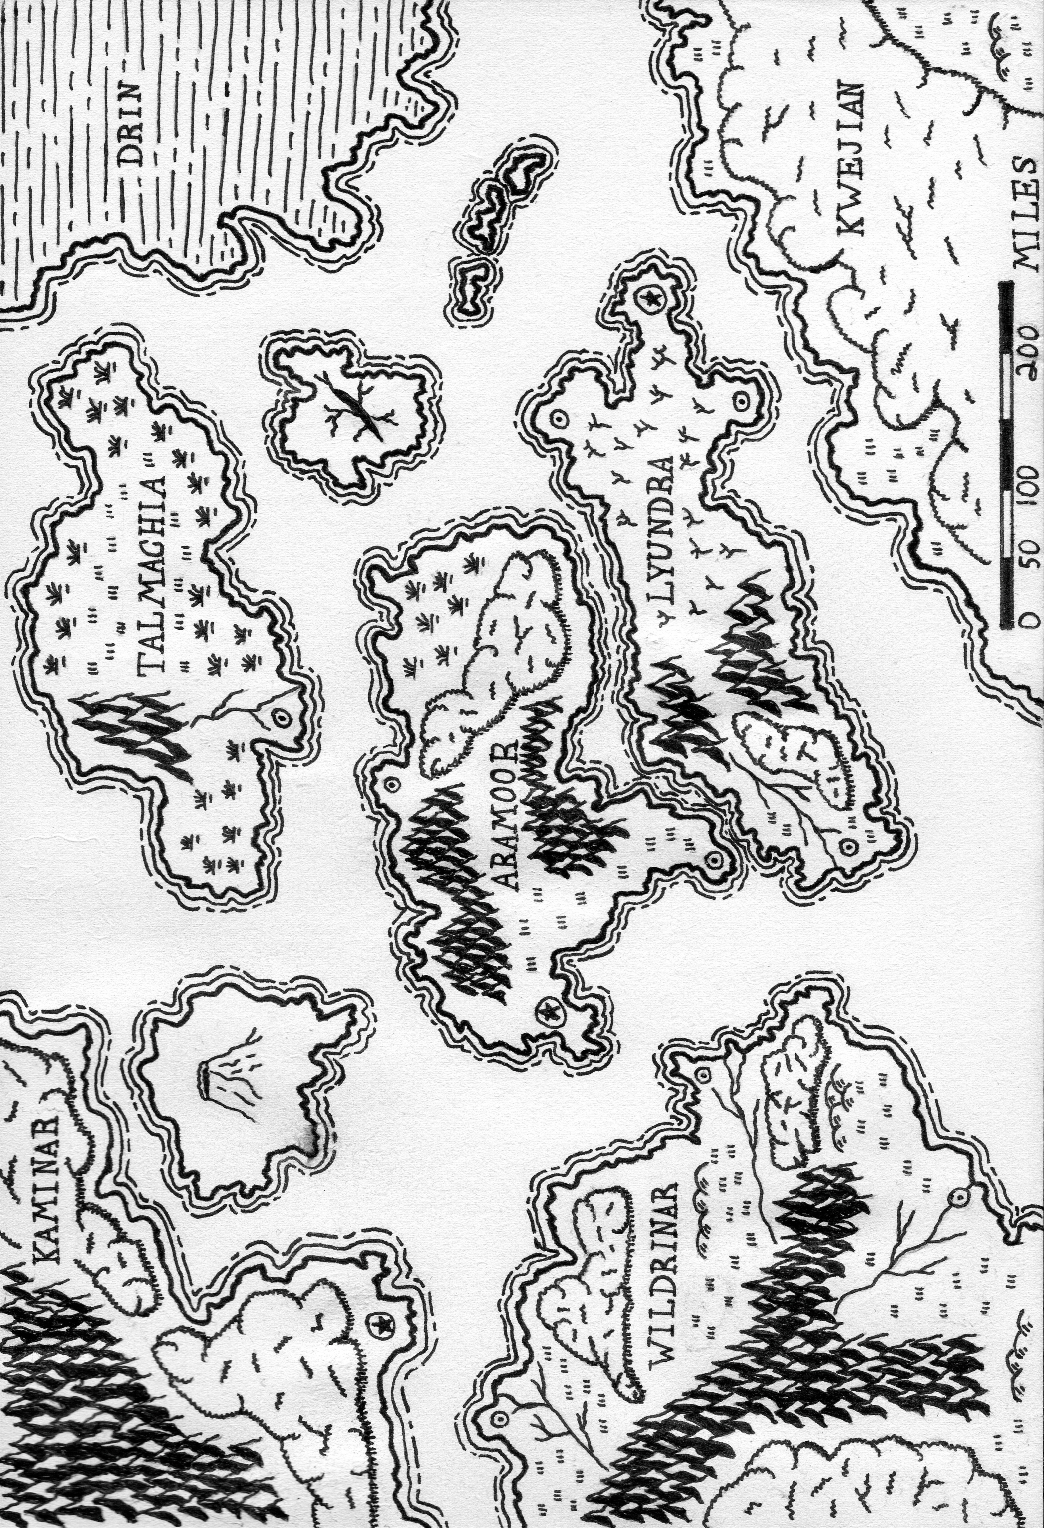 KAMINAR
TALMACHIA
DRIN
ARAMOOR
WILDRINAR
LYUNDRA
KWEJIAN
0 50 100 200 MILES